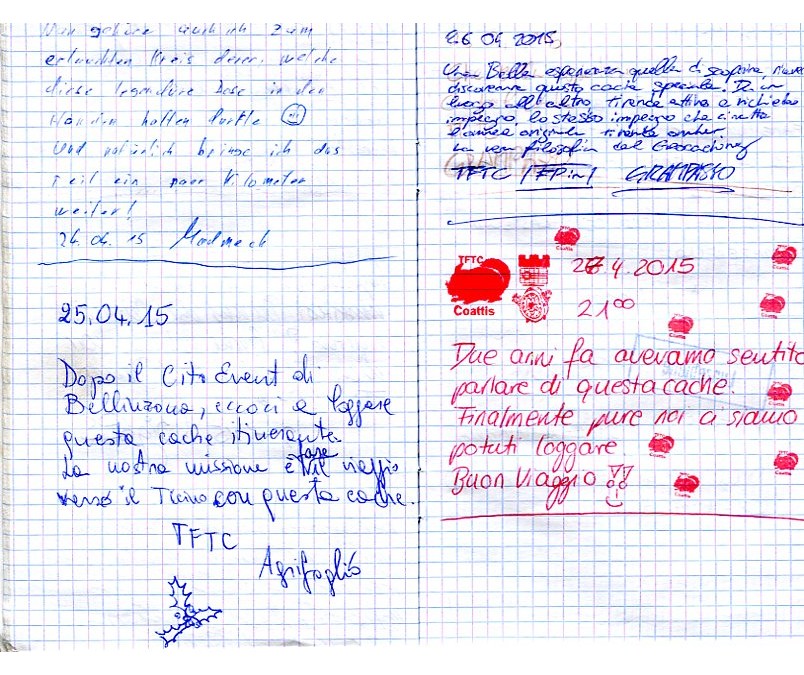 Nun gehöre auch ich zum
erlauchten Kreis derer, welche
diese legendäre Dose in den
Händen halten durfte
Und natürlich bringe ich das
Teil ein paar Kilometer
weiter!
24.04.15 Madmech
25.04.15
Dopo il Cito Event di
Bellinzona, eccoci a loggare
questa cache itinerante.
La nostra missione è fare il viaggio
verso il Ticino con questa cache.
TFTC
Agrifoglio
26 04 2015,
Una Bella esperienza quella di scoprire,
questo cache speciale. Da un
luogo all'altro,
impegno, lo stesso impegno che
La vera filosofia del Geocaching
TFTC
TFTC
Coattis
27.4.2015
2100
Due anni fa avevamo sentito
parlare di questa cache.
Finalmente pure noi ci siamo
potuti loggare.
Buon Viaggio